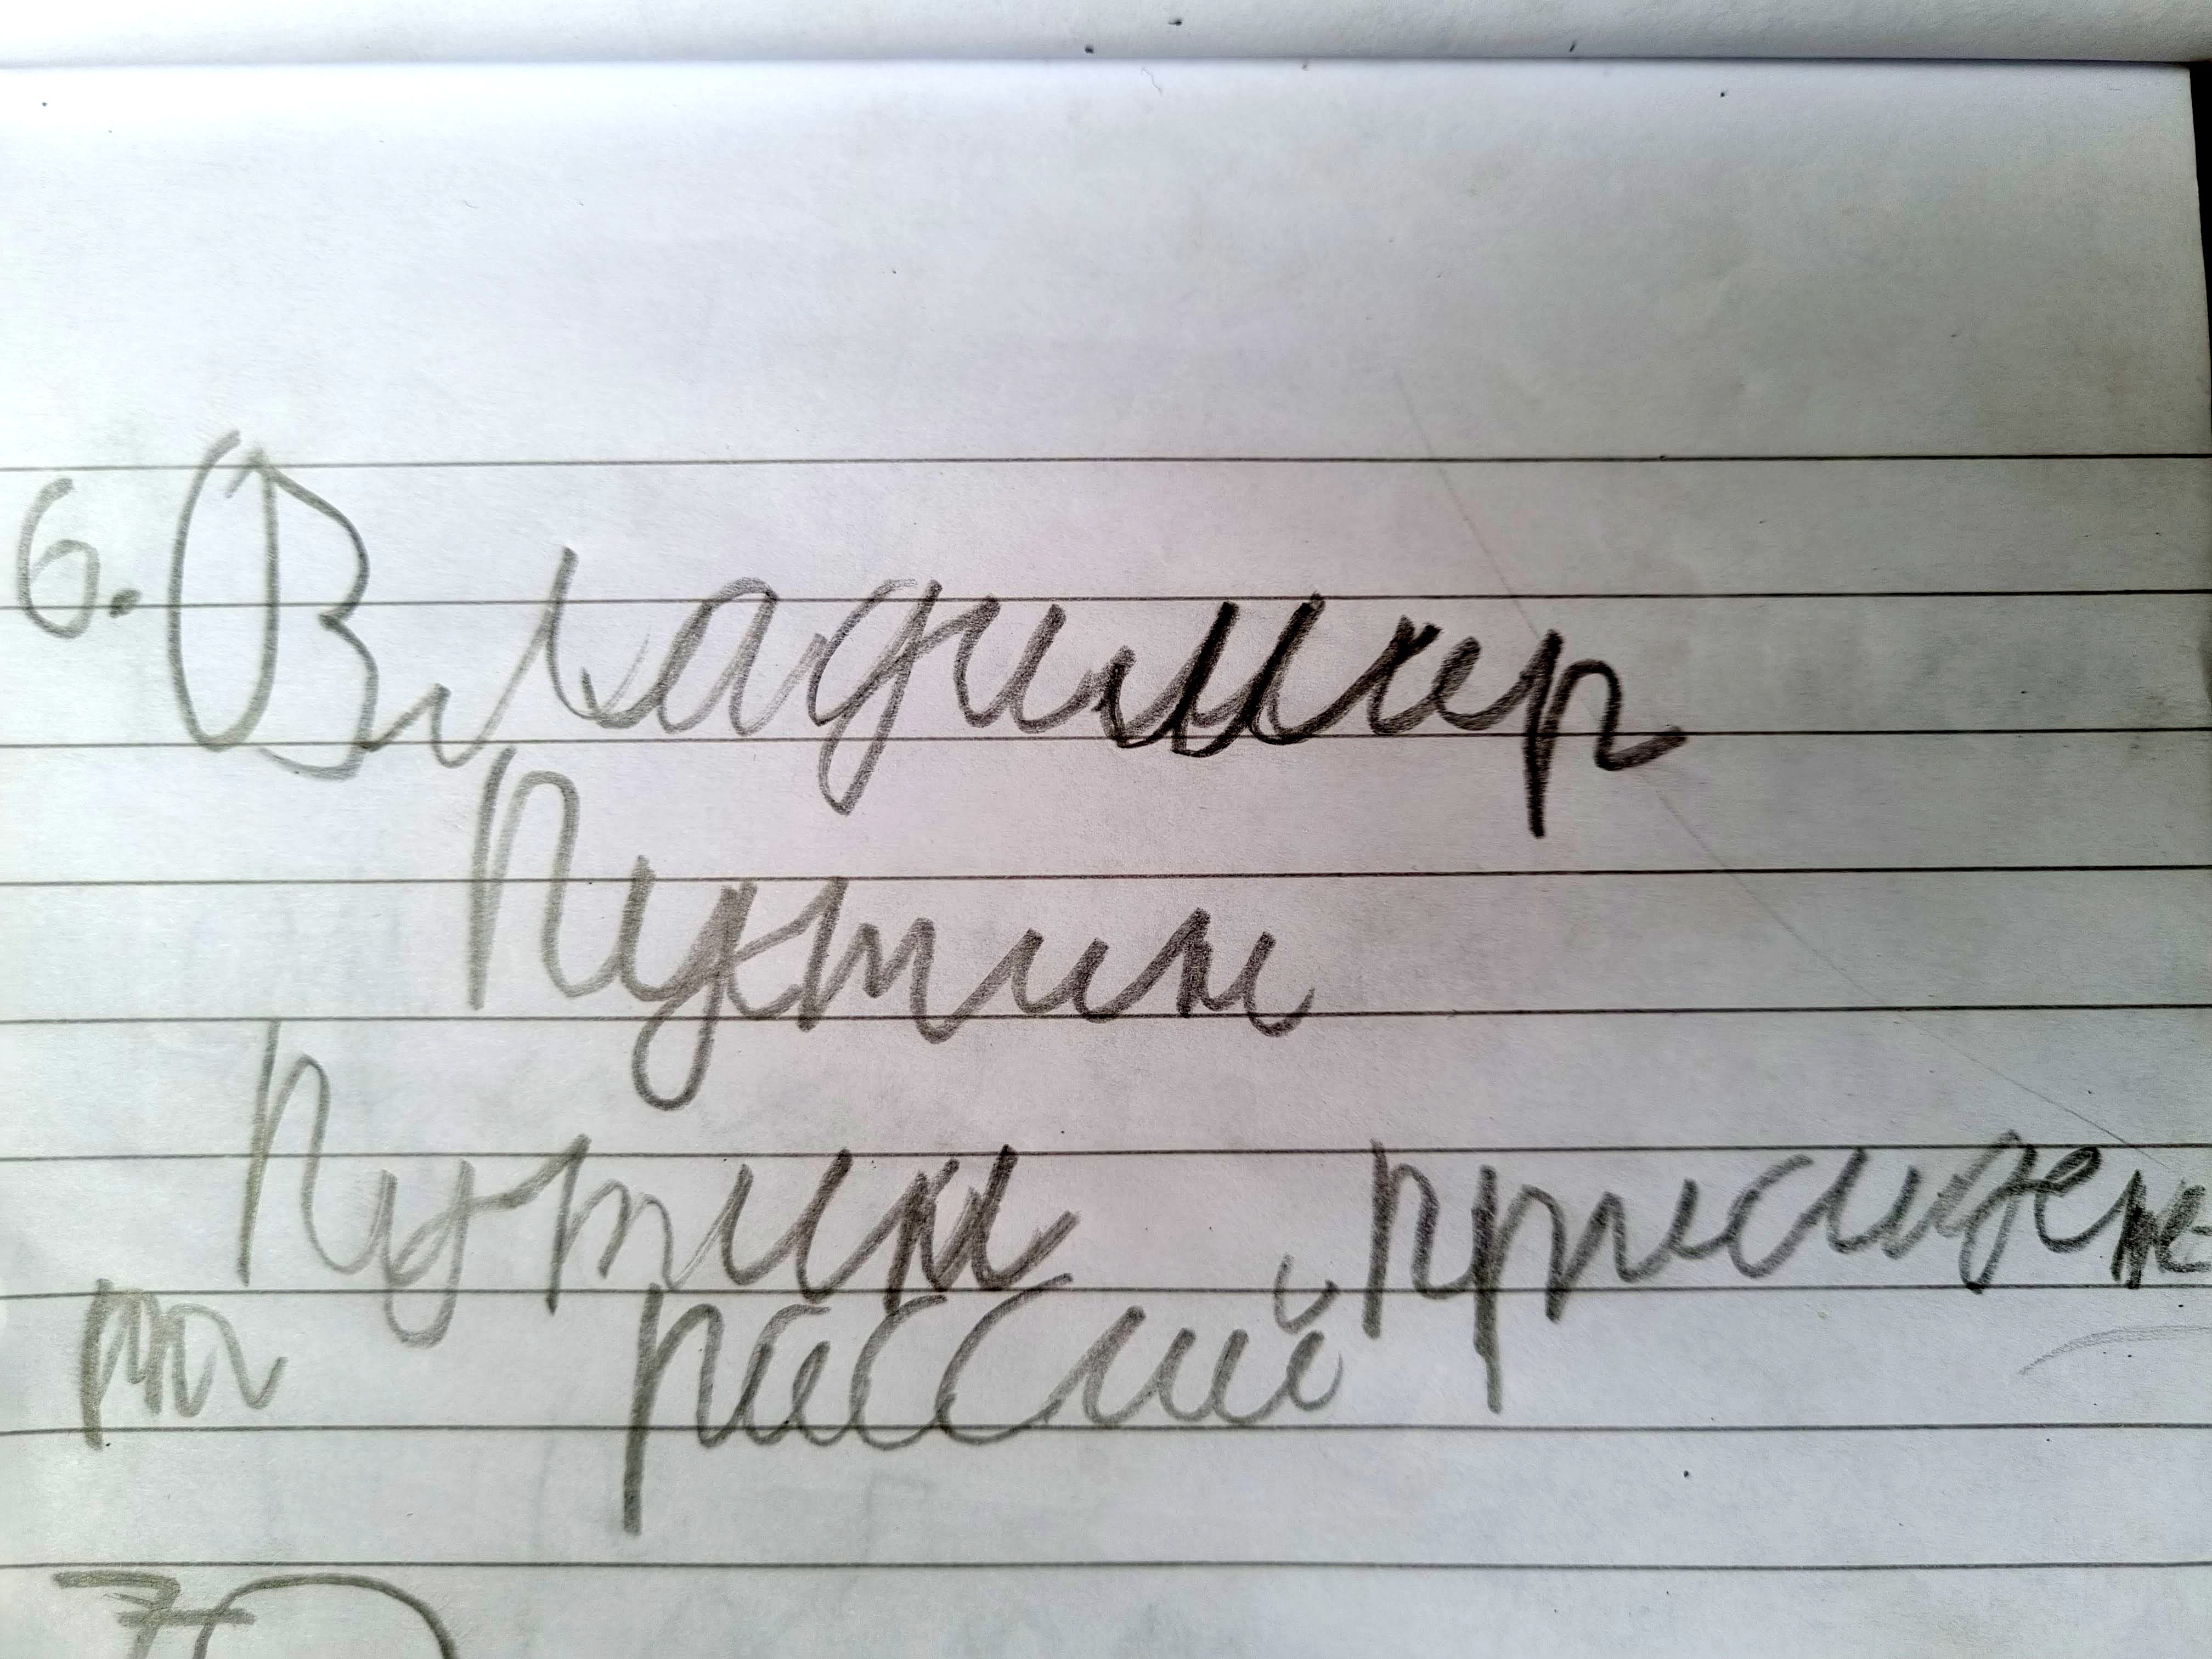 6. Владимир
Путин
Путин присиден
та рассий
7